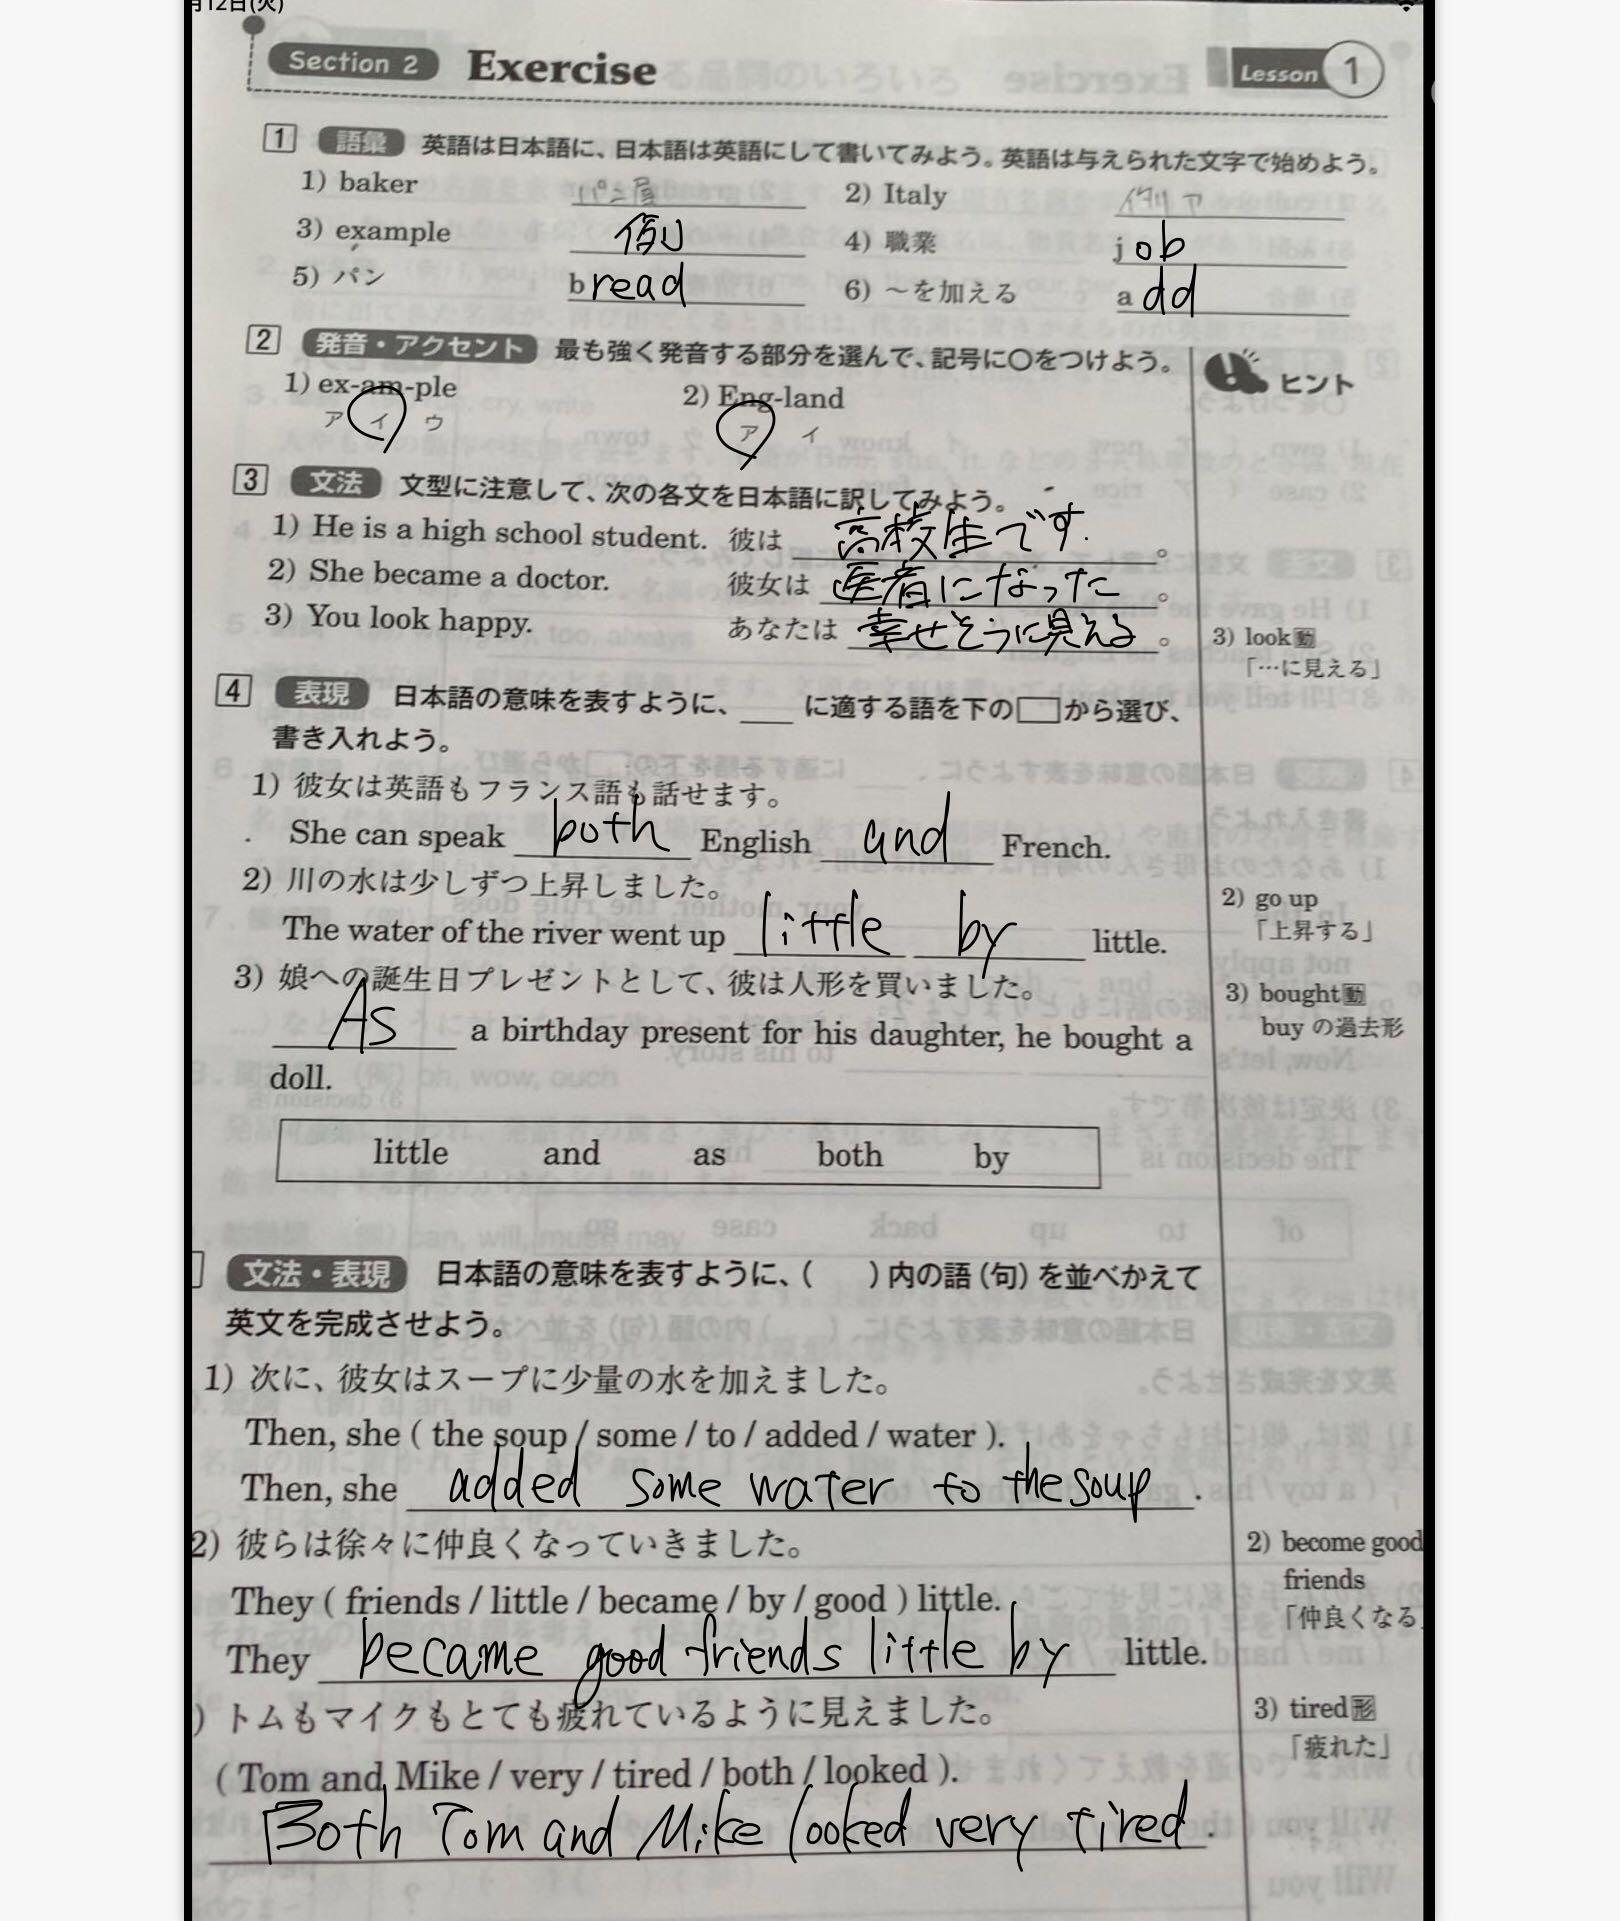 月12日(火)
Section 2 Exercise Lesson 1
1 語彙 英語は日本語に、日本語は英語にして書いてみよう。英語は与えられた文字で始めよう。
1) baker パン屋 2) Italy イタリア
3) example 例 4) 職業 job
5) パン bread 6) ～を加える add
2 発音・アクセント 最も強く発音する部分を選んで、記号に〇をつけよう。
ヒント
1) ex-am-ple 2) Eng-land
ア イ ウ ア イ
3 文法 文型に注意して、次の各文を日本語に訳してみよう。
1) He is a high school student. 彼は 高校生です。
2) She became a doctor. 彼女は 医者になった。
3) You look happy. あなたは 幸せそうに見える。
3) look動
「…に見える」
4 表現 日本語の意味を表すように、___ に適する語を下の□から選び、
書き入れよう。
1) 彼女は英語もフランス語も話せます。
She can speak both English and French.
2) 川の水は少しずつ上昇しました。
The water of the river went up little by little.
2) go up
「上昇する」
3) 娘への誕生日プレゼントとして、彼は人形を買いました。
As a birthday present for his daughter, he bought a
doll.
3) bought動
buy の過去形
little and as both by
文法・表現 日本語の意味を表すように、( )内の語(句)を並べかえて
英文を完成させよう。
1) 次に、彼女はスープに少量の水を加えました。
Then, she ( the soup / some / to / added / water ).
Then, she added some water to the soup.
2) 彼らは徐々に仲良くなっていきました。
They ( friends / little / became / by / good ) little.
They became good friends little by little.
2) become good
friends
「仲良くなる
) トムもマイクもとても疲れているように見えました。
( Tom and Mike / very / tired / both / looked ).
Both Tom and Mike looked very tired.
3) tired形
「疲れた」